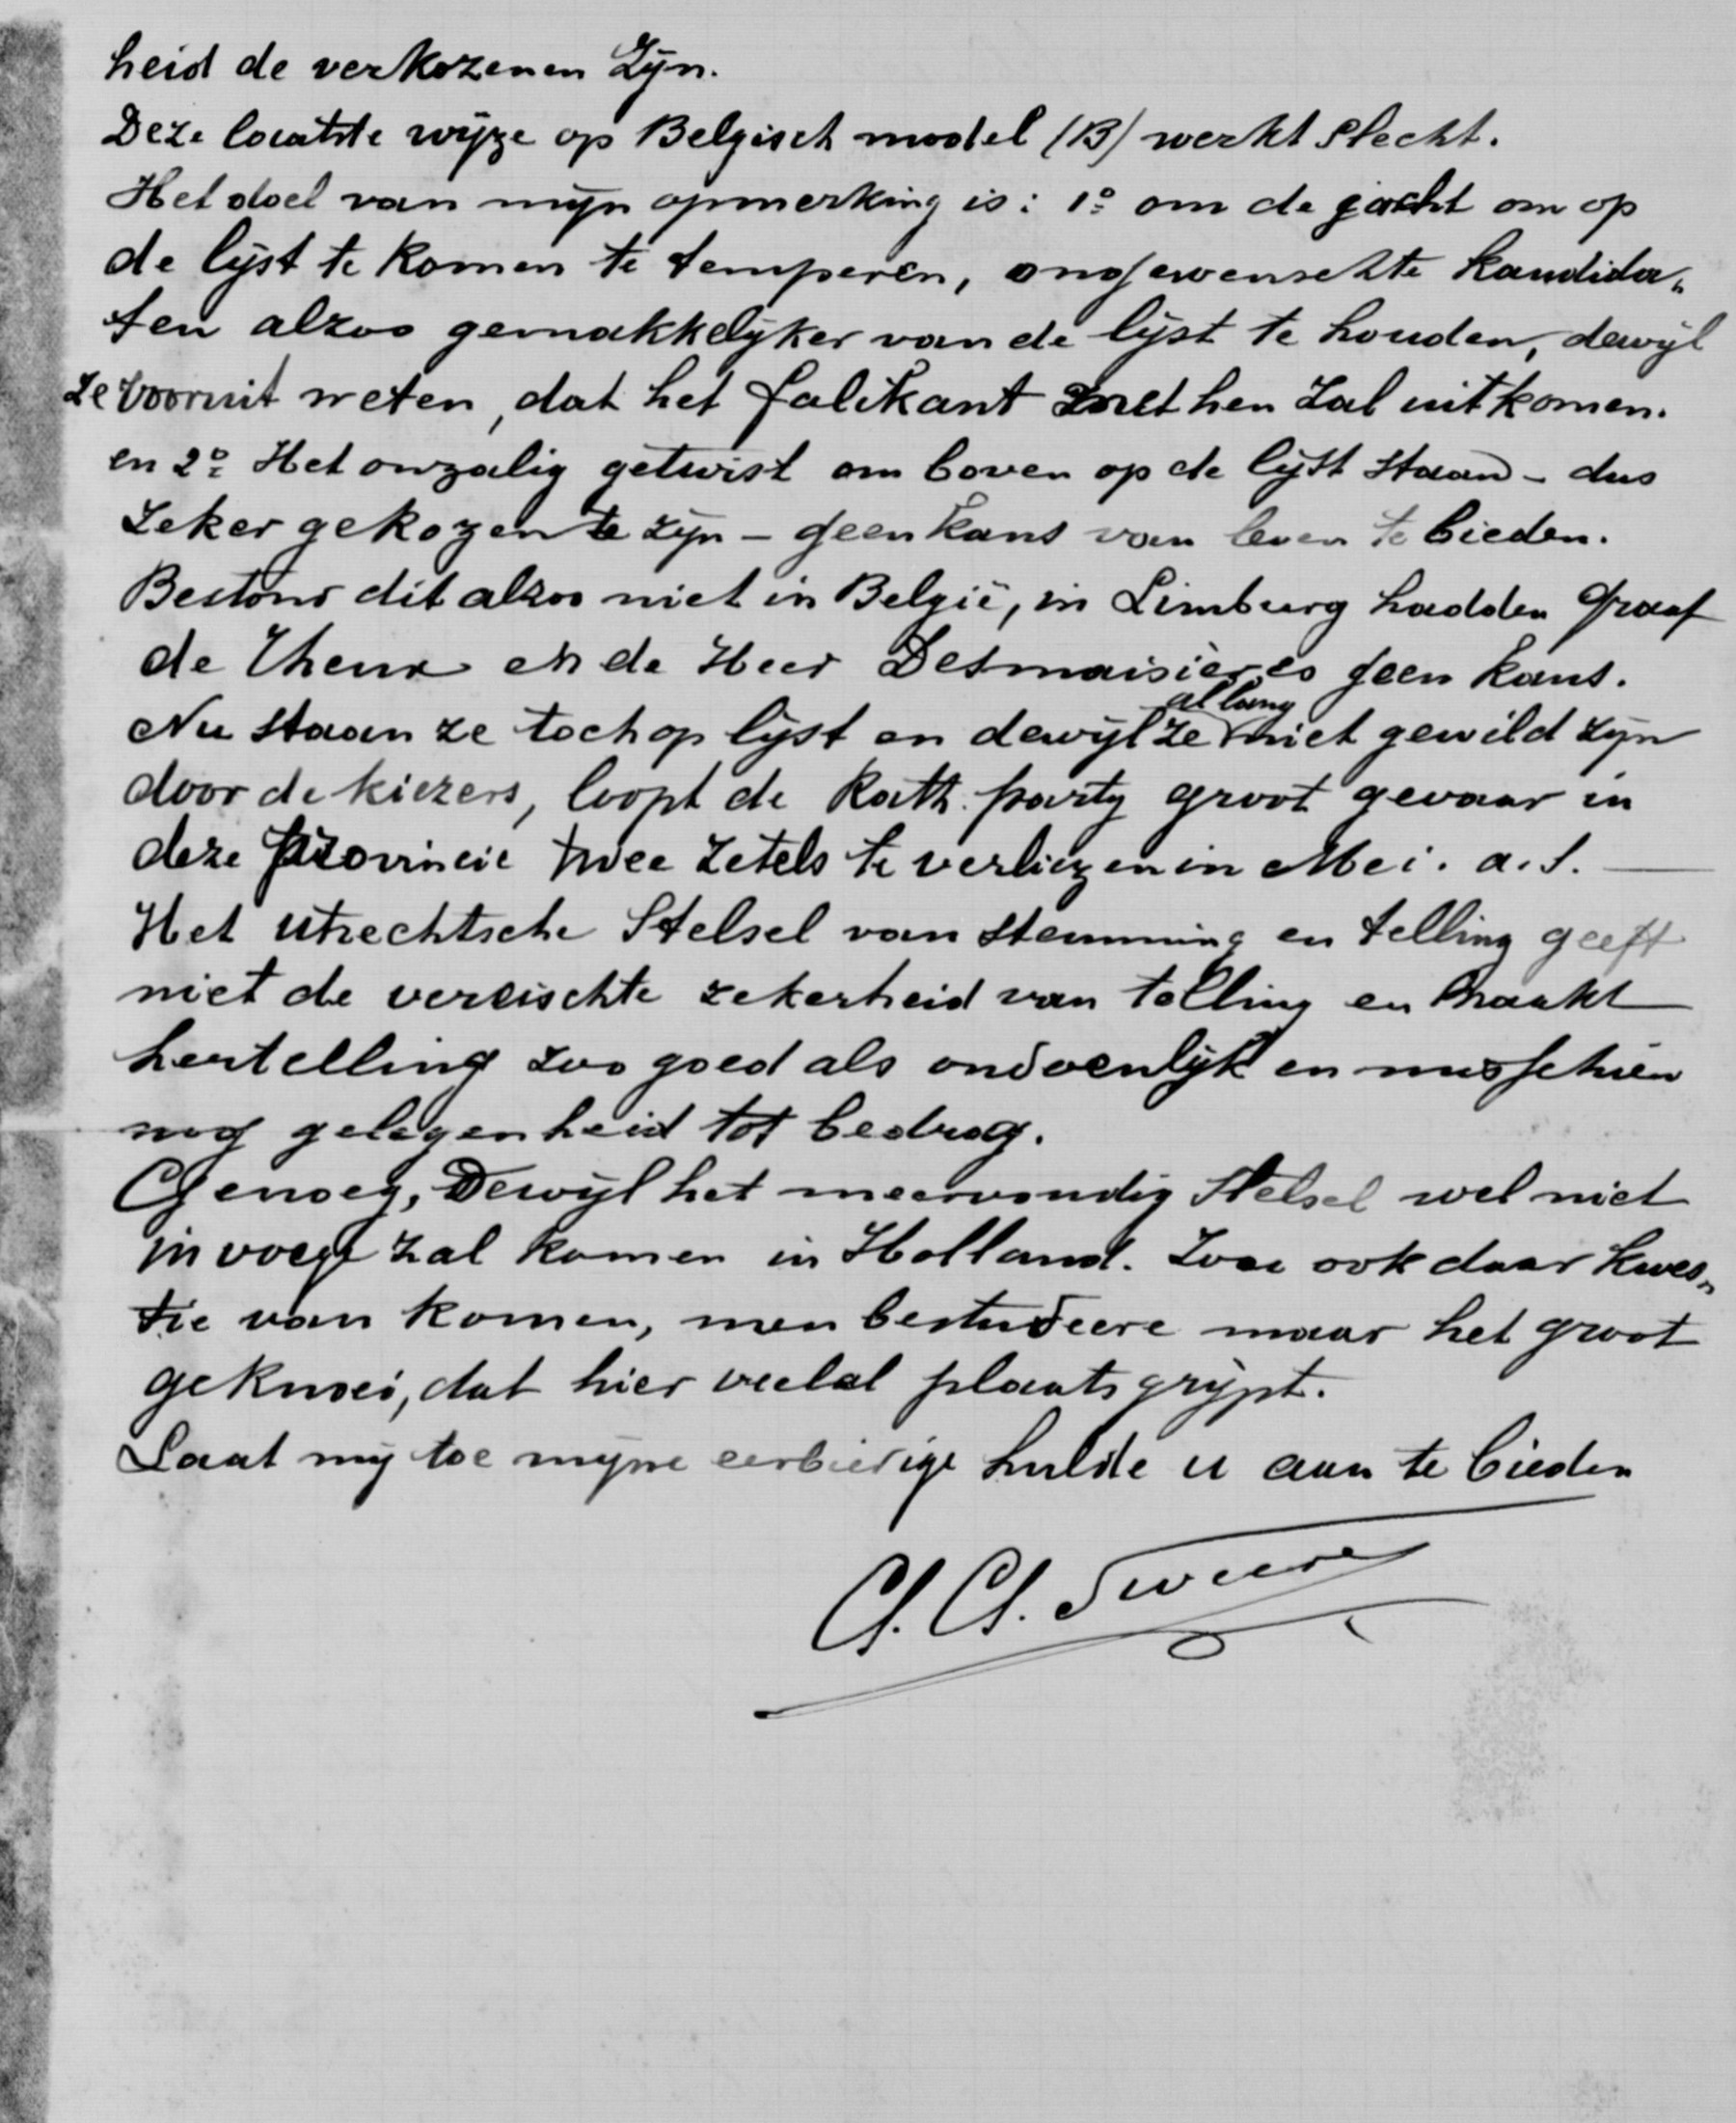 heid de verkozenen Zijn.
Deze laatste wijze op Belgisch model (B) werkt slecht.
Het doel van mijn opmerking is: 1º om de jacht om op
de lijst te komen te temperen, ongewenschte kandida„
ten alzoo gemakkelijker van de lijst te houden, dewijl
ze vooruit weten, dat het falikant met hen zal uitkomen.
en 2º Het onzalig getwist om boven op de lijst staan - dus
zeker gekozen te zijn - geen kans van leven te bieden.
Bestond dit alzoo niet in België, in Limburg hadden Graaf
de Theux en de Heer Desmaisières geen kans.
al lang
Nu staan ze toch op lijst en dewijl ze niet gewild zijn
door de kiezers, loopt de Kath. partij groot gevaar in
deze provincie twee zetels te verliezen in Mei. a. s.
Het Utrechtsche Stelsel van stemming en telling geeft
niet de vereischte zekerheid van telling en maakt
hertelling zoo goed als ondoenlijk en misschien
nog gelegenheid tot bedrog.
Genoeg, Dewijl het meervoudig Stelsel wel niet
in voege zal komen in Holland. Zoo ook daar kwes„
tie van komen, men bestudeere maar het groot
geknoei, dat hier veelal plaats grijpt.
Laat mij toe mijne eerbiedige hulde u aan te bieden